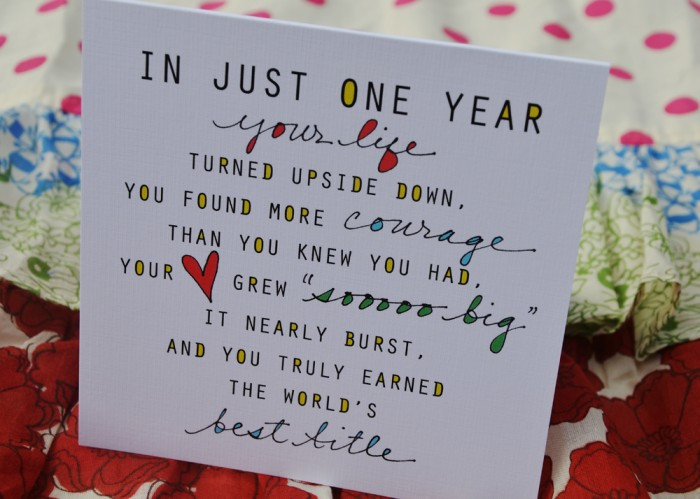 IN JUST ONE YEAR
your life
TURNED UPSIDE DOWN,
YOU FOUND MORE courage
THAN YOU KNEW YOU HAD,
YOUR ♥ GREW "sooooo big"
IT NEARLY BURST,
AND YOU TRULY EARNED
THE WORLD'S
best title